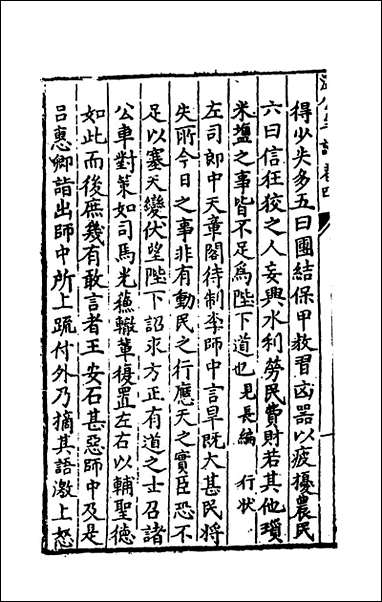 得少失多五曰團結保甲教習凶器以疲擾農民
六曰信狂狡之人妄興水利勞民費財若其他瑣
米鹽之事皆不足爲陛下道也見長編 行狀
左司郎中天章閣待制李師中言旱既大甚民將
失所今日之事非有動民之行應天之實臣恐不
足以塞天變伏望陛下詔求方正有道之士召諸
公車對策如司馬光蘇轍輩復置左右以輔聖德
如此而後庶幾有敢言者王安石甚惡師中及是
呂惠卿詣出師中所上疏付外乃摘其語激上怒